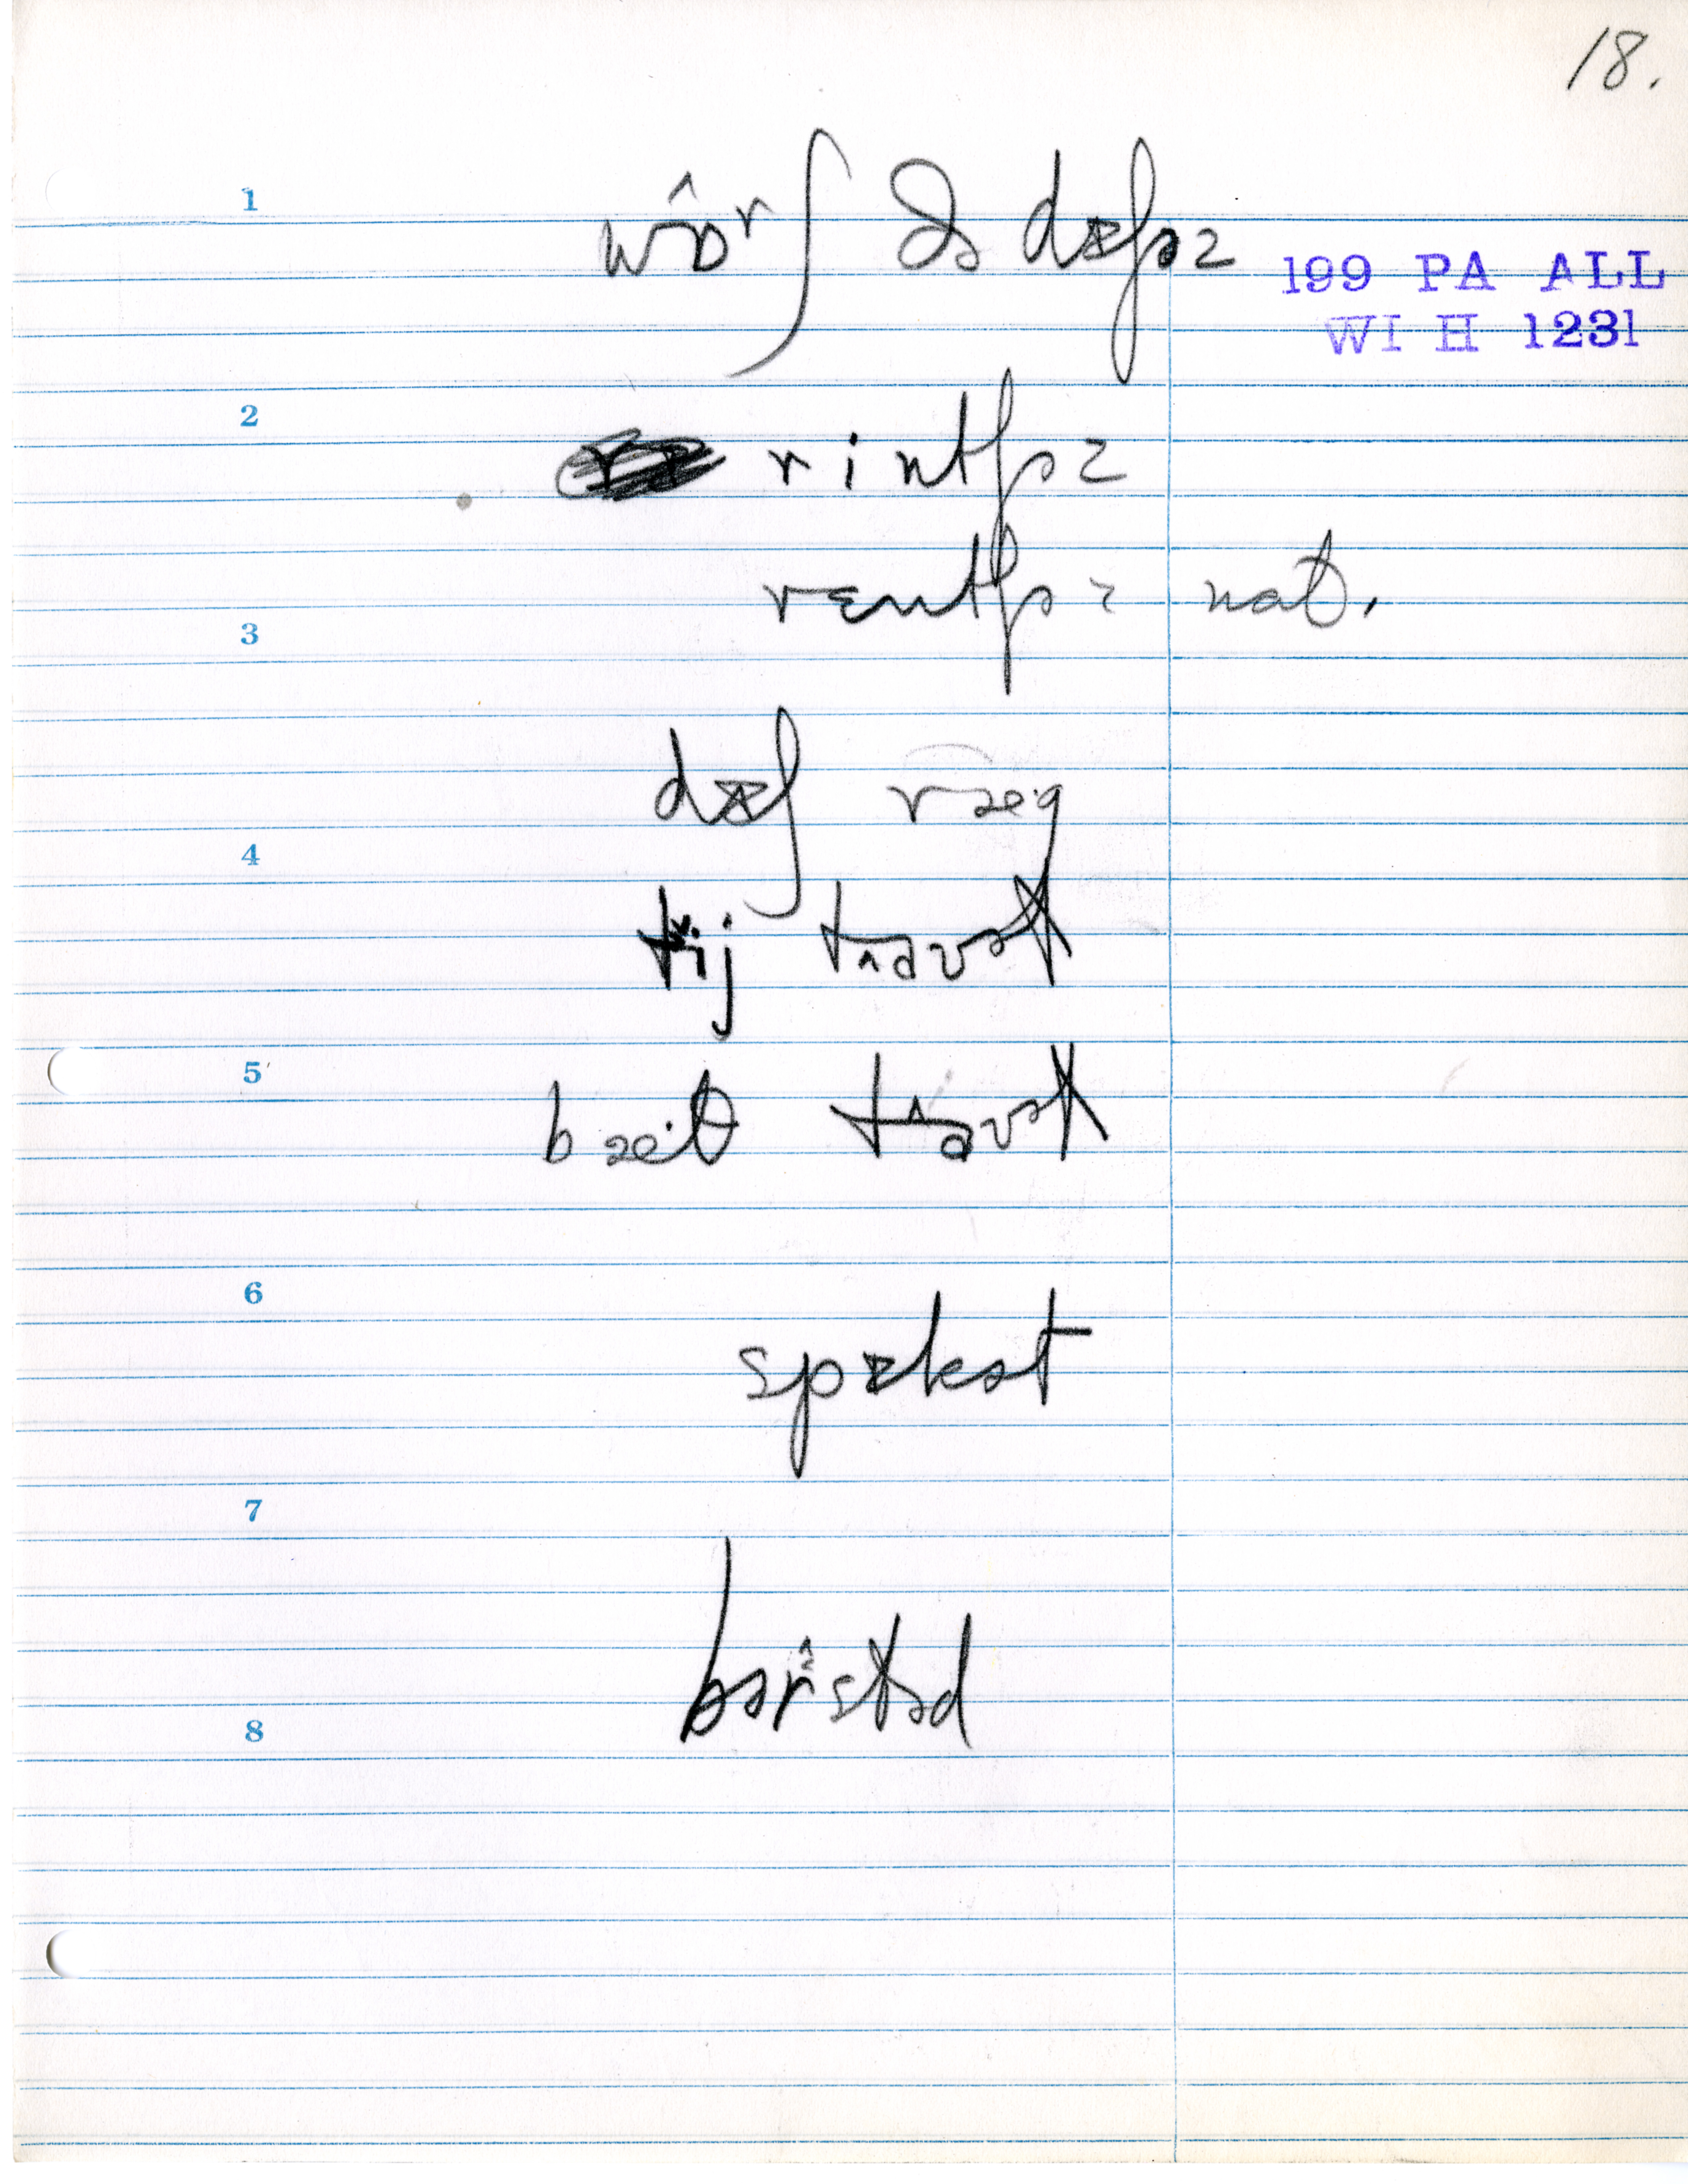 18.
1
wɒ̂ʳʃ ðə dɪʃəz
199 PA ALL
WI H 1231
2
rintʃəz
rɛntʃəz nat.
3
dɪʃ ræ·g
4
tij tâʊəɫ
5
bæ·θ tâʊəɫ
6
spɪkət
7
bərstəd
8